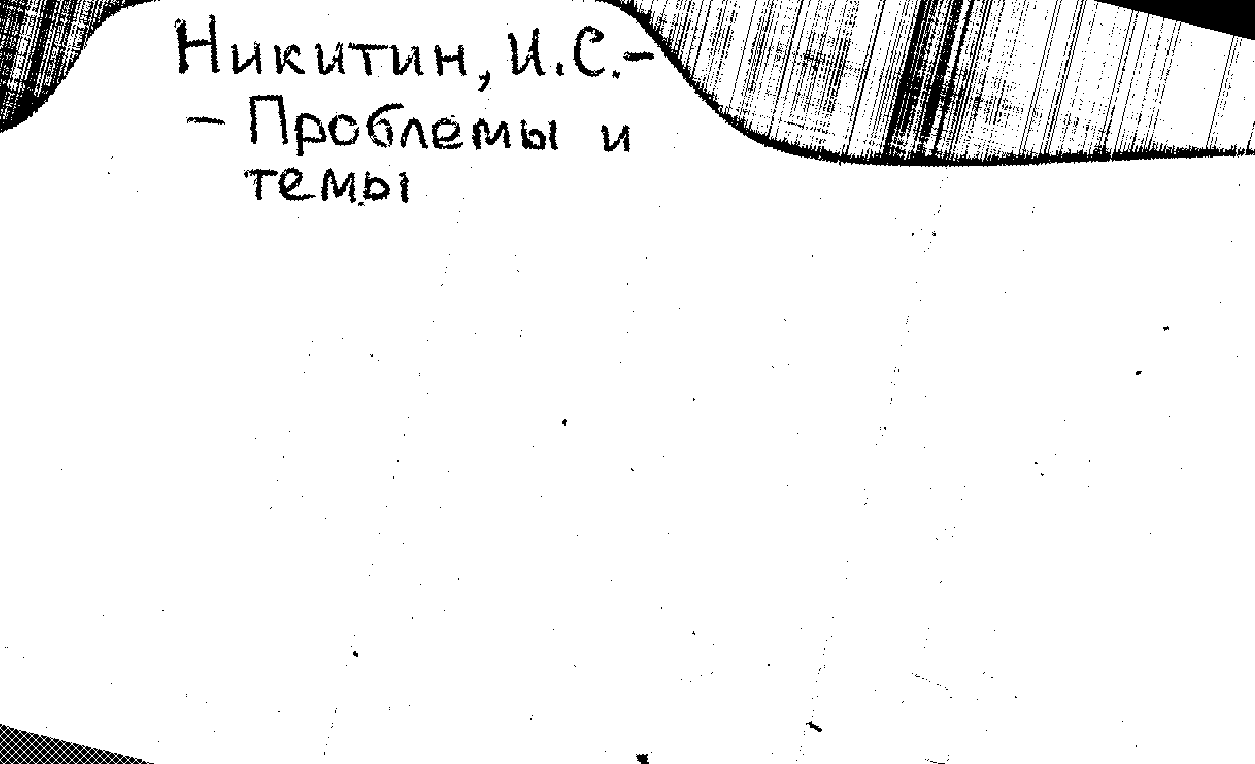 Никитин, И.С.-
- Проблемы и
темы